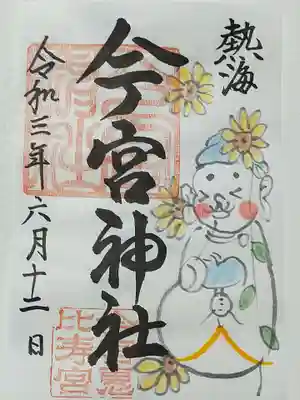 熱海
今宮神社
令和三年六月十二日
比寿宮